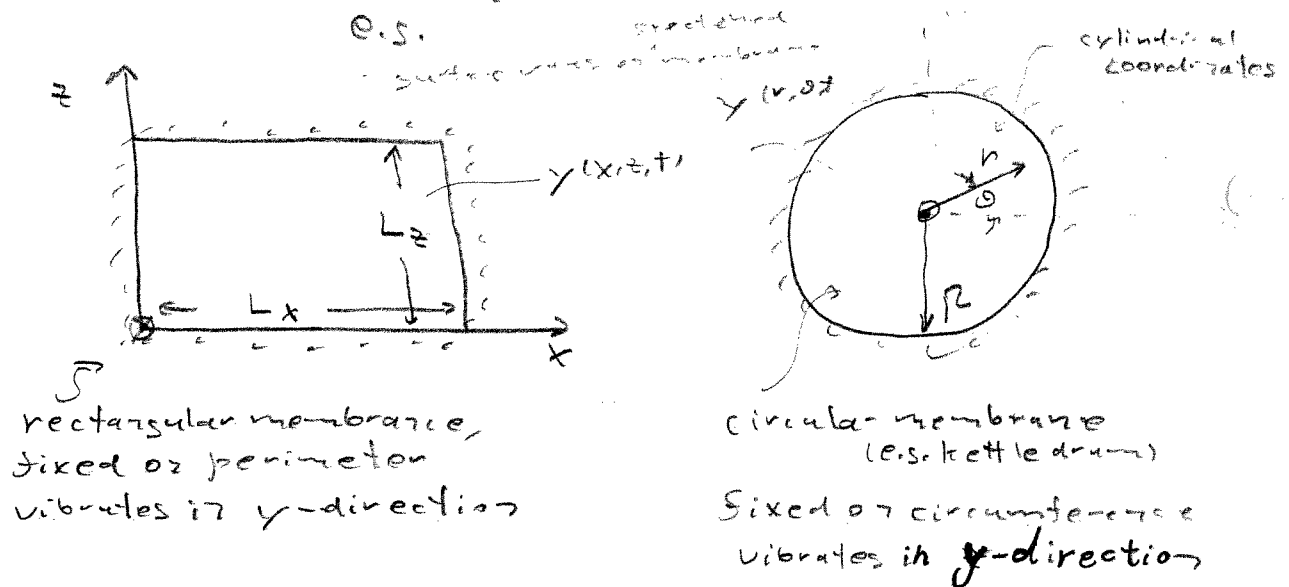 e.g.
stretched
surface waves on membrane
cylindrical
coordinates
z
y(r,θ,t)
y(x,z,t)
r
θ
Lz
Lx
R
x
rectangular membrane,
fixed on perimeter
vibrates in y-direction
circular membrane
(e.g. kettle drum)
fixed on circumference
vibrates in y-direction